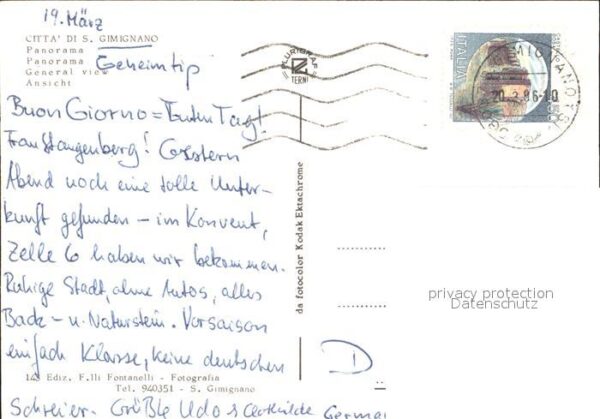 19. März
CITTA' DI S. GIMIGNANO
Panorama
Panorama
General view
Ansicht
Geheimtip
Buon Giorno = Guten Tag!
Frau Stangenberg! Gestern
Abend noch eine tolle Unter-
kunft gefunden - im Konvent,
Zelle 6 haben wir bekommen.
Ruhige Stadt, ohne Autos, alles
Back- u. Naturstein. Vorsaison
einfach Klasse, keine deutschen
Schreier. Grüßle Udo &
German
142 Ediz. F.lli Fontanelli - Fotografia
Tel. 940351 - S. Gimignano
PLURIGRAF
TERNI
da fotocolor Kodak Ektachrome
ITALIA
20.3.86-10
D
privacy protection
Datenschutz